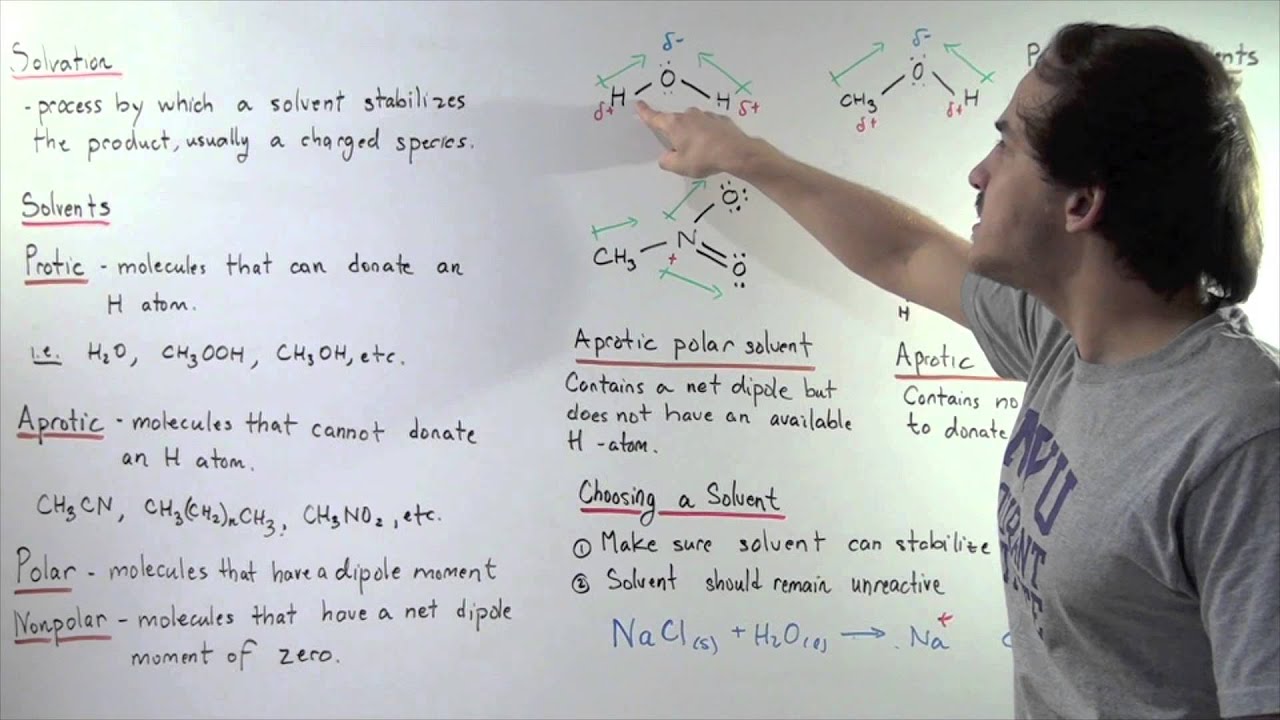 Solvation
- process by which a solvent stabilizes
the product, usually a charged species.
Solvents
Protic - molecules that can donate an
H atom.
i.e. H₂O, CH₃OOH, CH₃OH, etc.
Aprotic - molecules that cannot donate
an H atom.
CH₃CN, CH₃(CH₂)ₙCH₃, CH₃NO₂, etc.
Polar - molecules that have a dipole moment
Nonpolar - molecules that have a net dipole
moment of zero.
δ-
O
H H
δ+ δ+
δ-
O
CH₃ H
δ+ δ+
O
CH₃ N
+ O
Aprotic polar solvent
Contains a net dipole but
does not have an available
H-atom.
H
Aprotic
Contains no
to donate
Choosing a Solvent
① Make sure solvent can stabilize
② Solvent should remain unreactive
NaCl(s) + H₂O(l) → Na⁺